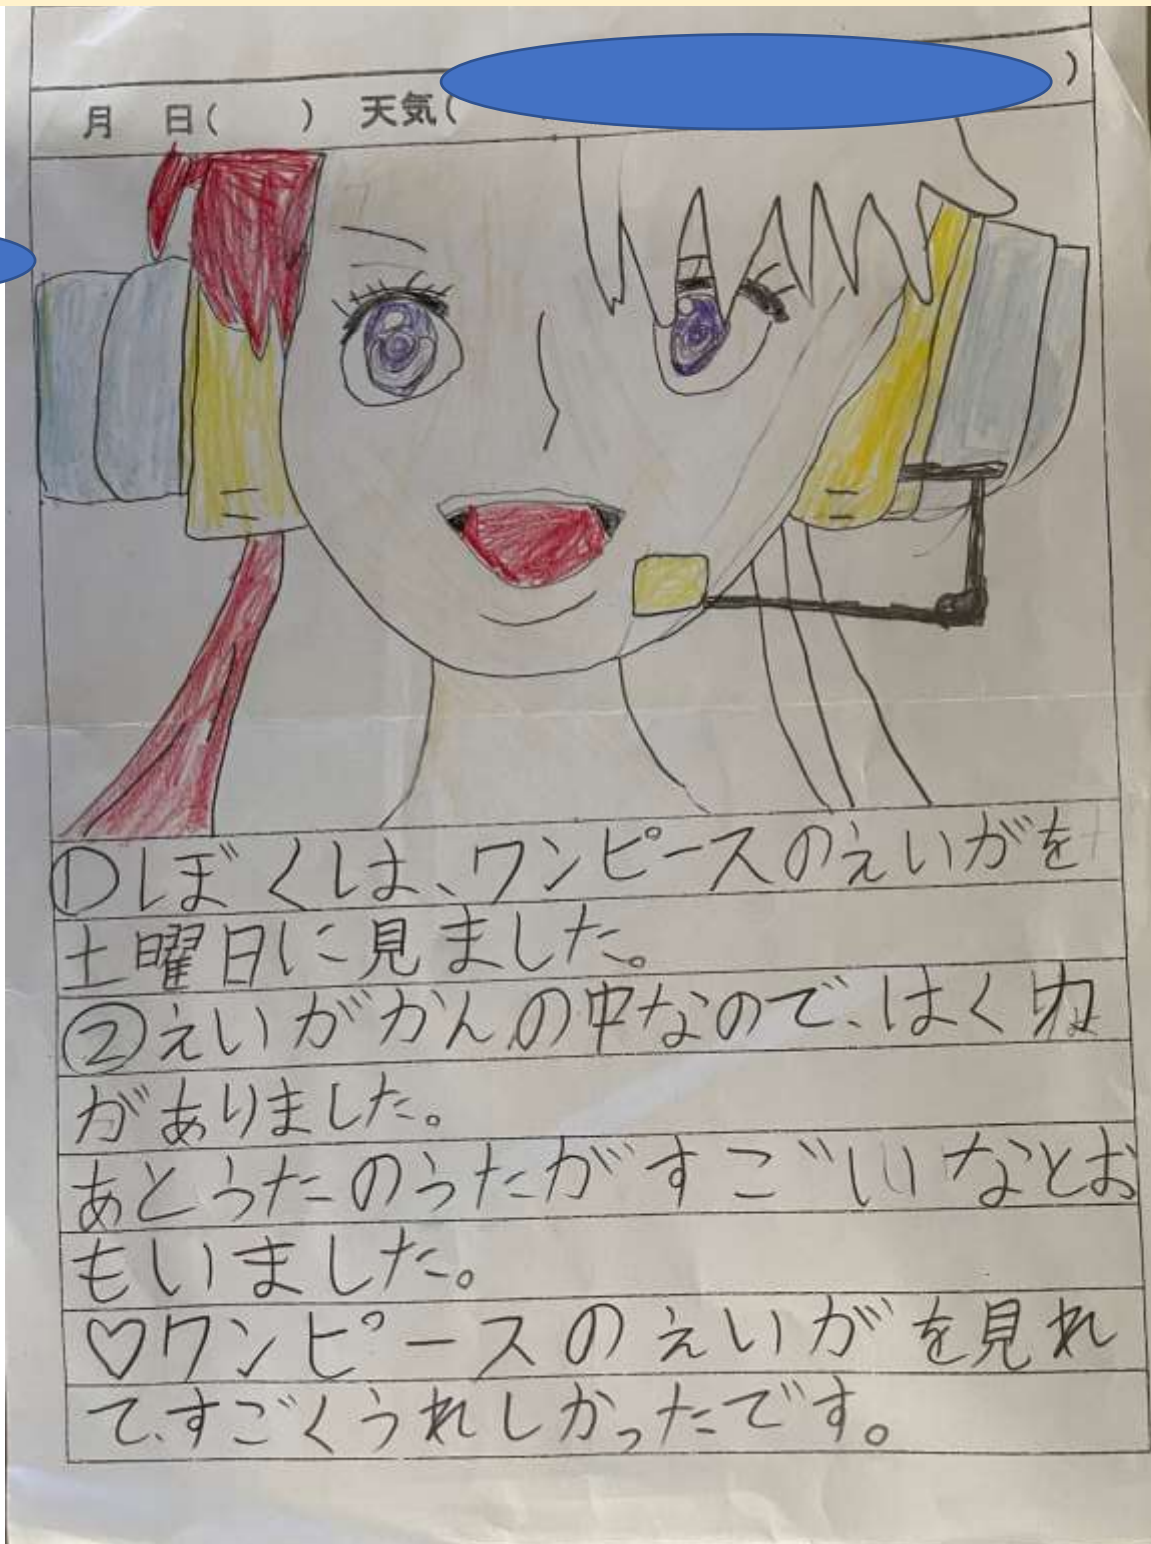 月 日( ) 天気( )
①ぼくは、ワンピースのえいがを
土曜日に見ました。
②えいがかんの中なので、はくりょく
がありました。
あとうたのうたがすごいなとお
もいました。
♡ワンピースのえいがを見れ
て、すごくうれしかったです。